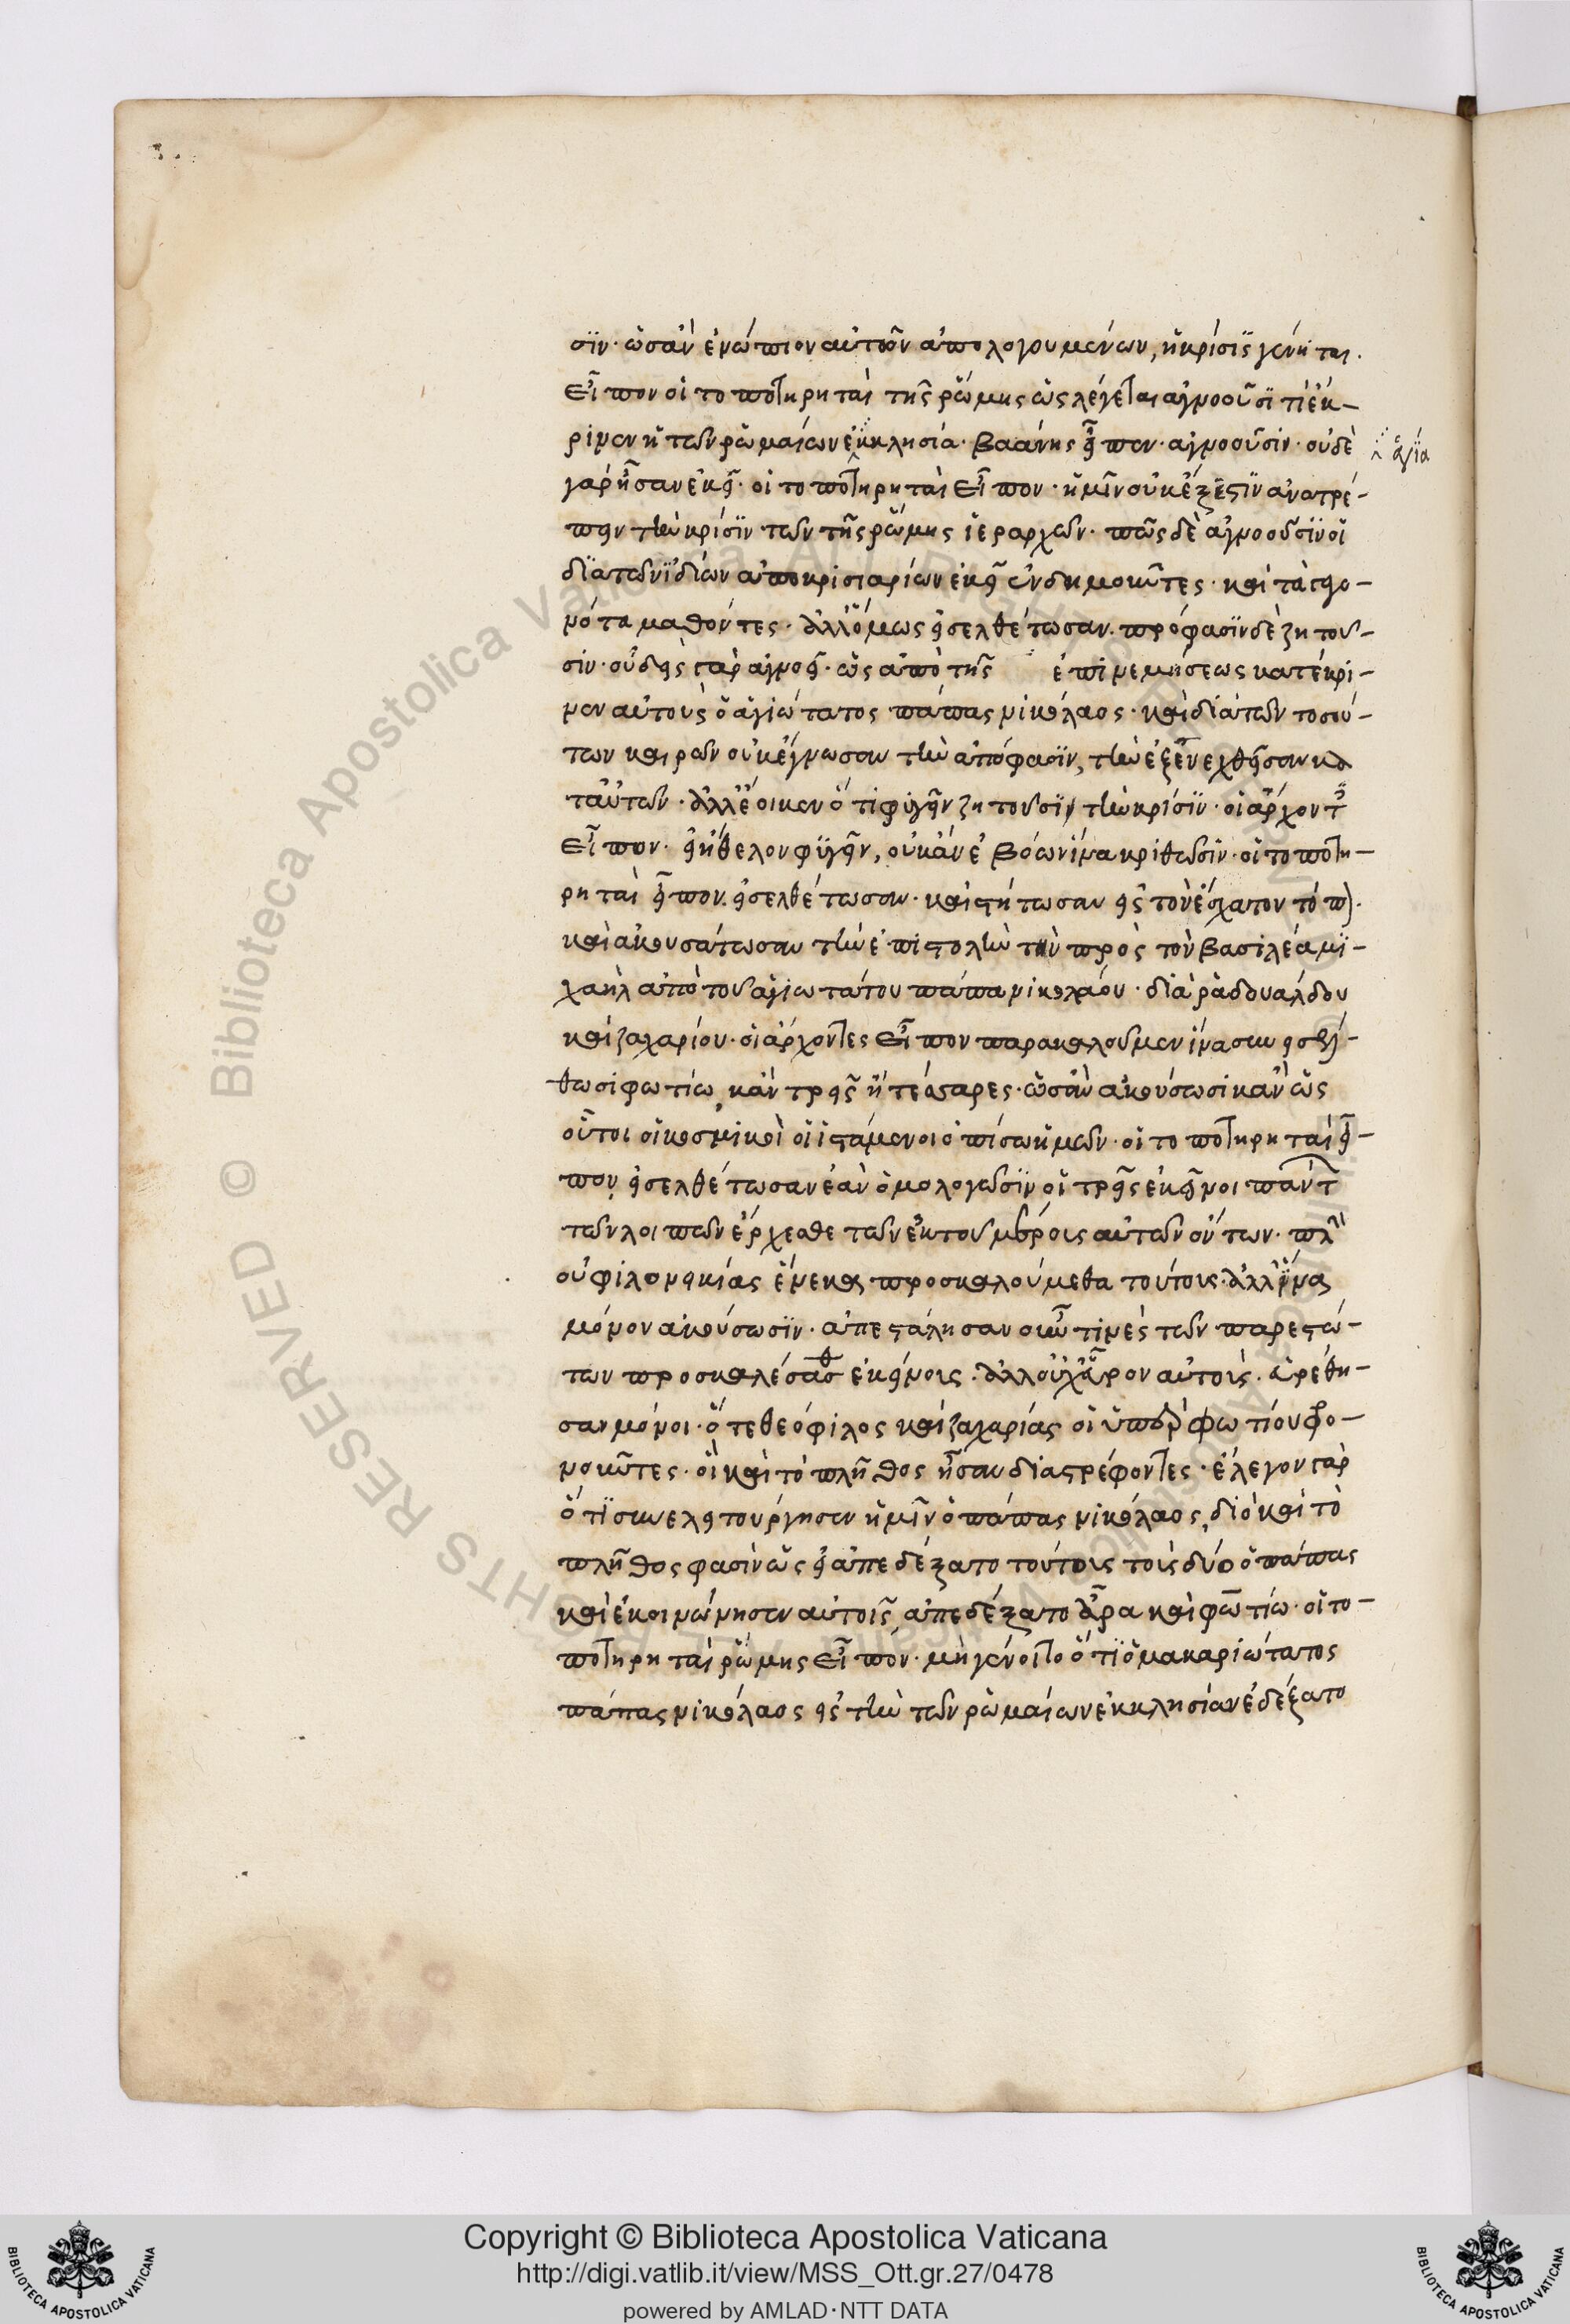 σϊν· ὡσὰν ἐνώπιον αὐτῶν ἀπολογουμένων, ἡ κρίσϊς γένηται.
εἶπον οἱ τοποτηρηταὶ τῆς ῥώμης ὡς λέγεται ἀγνοοῦσϊ τί ἐκ-
ρινεν ἡ τῶν ῥωμαίων ἐκκλησία· βαάνης εἶπεν· ἀγνοοῦσιν· οὐδὲ
ἁγία
γὰρ ἦσαν ἐκεῖ· οἱ τοποτηρηταὶ εἶπον· ἡμῖν οὐκ ἔξεστϊν ἀνατρέ-
πειν τὴν κρίσϊν τῶν τῆς ῥώμης ἱεραρχῶν· πῶς δὲ ἀγνοοῦσϊν οἱ
δϊὰ τῶν ἰδίων ἀποκρισιαρίων ἐκεῖ ἐνδημοῦντες· καὶ τὰ γεγο-
νότα μαθόντες· ἀλλ' ὅμως εἰσελθέτωσαν. πρόφασϊν δὲ ζητοῦ-
σιν· οὐδεὶς γὰρ ἀγνοεῖ· ὡς ἀπὸ τῆς ἐπινεμήσεως κατέκρι-
νεν αὐτοὺς ὁ ἁγιώτατος πάπας νικόλαος· καὶ διὰ τῶν τοσού-
των καιρῶν οὐκ ἔγνωσαν τὴν ἀπόφασϊν, τὴν ἐξενεχθεῖσαν κα
τ' αὐτῶν· ἀλλ' ἔοικεν ὅτι φυγεῖν ζητοῦσϊ τὴν κρίσϊν· οἱ ἄρχοντες
εἶπον· εἰ ἤθελον φϋγεῖν, οὐκ ἂν ἐβόων ἵνα κριθῶσϊν· οἱ τοποτη-
ρηταὶ εἶπον. εἰσελθέτωσαν· καὶ στήτωσαν εἰς τὸν ἔσχατον τόπον·
καὶ ἀκουσάτωσαν τὴν ἐπιστολὴν τὴν πρὸς τὸν βασιλέα μϊ-
χαὴλ ἀπὸ τοῦ ἁγιωτάτου πάπα νικολάου· διὰ ῥαδουάλδου
καὶ ζαχαρίου· οἱ ἄρχοντες εἶπον παρακαλοῦμεν ἵνα συνεισέλ-
θωσι φωτίω, κἂν τρεῖς ἢ τέσσαρες· ὡσὰν ἀκούσωσι κἂν ὡς
οὗτοι οἱ κοσμικοὶ οἱ ἱστάμενοι ὀπίσω ἡμῶν· οἱ τοποτηρηταὶ εἶ-
πον, εἰσελθέτωσαν ἐὰν ὁμολογῶσϊν οἱ τρεῖς ἐκεῖνοι πάντων
τῶν λοιπῶν ἔρχεσθε τῶν ἐκ τοῦ μέρους αὐτῶν ὄντων· πλὴν
οὐ φιλονεικίας ἕνεκα προσκαλούμεθα τούτους· ἀλλ' ἵνα
μόνον ἀκούσωσϊν· ἀπεστάλησαν οὖν τινὲς τῶν παρεστώ-
των προσκαλέσασθαι ἐκείνους· ἀλλ' οὐχ εὗρον αὐτοὺς. εὑρέθη-
σαν μόνοι· ὅ τε θεόφιλος καὶ ζαχαρίας οἱ ὑπὲρ φωτίου φρο-
νοῦντες· οἳ καὶ τὸ πλῆθος ἦσαν διαστρέφοντες· ἔλεγον γὰρ
ὅτϊ συνελειτούργησεν ἡμῖν ὁ πάπας νικόλαος, διὸ καὶ τὸ
πλῆθος φασὶν ὡς εἰ ἀπεδέξατο τούτους τοὺς δύο ὁ πάπας
καὶ ἐκοινώνησεν αὐτοῖς, ἀπεδέξατο ἄρα καὶ φωτίω· οἱ το-
ποτηρηταὶ ῥώμης εἶπον· μὴ γένοιτο ὅτϊ ὁ μακαριώτατος
πάπας νικόλαος εἰς τὴν τῶν ῥωμαίων ἐκκλησίαν ἐδέξατο
Copyright © Biblioteca Apostolica Vaticana
http://digi.vatlib.it/view/MSS_Ott.gr.27/0478
powered by AMLAD·NTT DATA